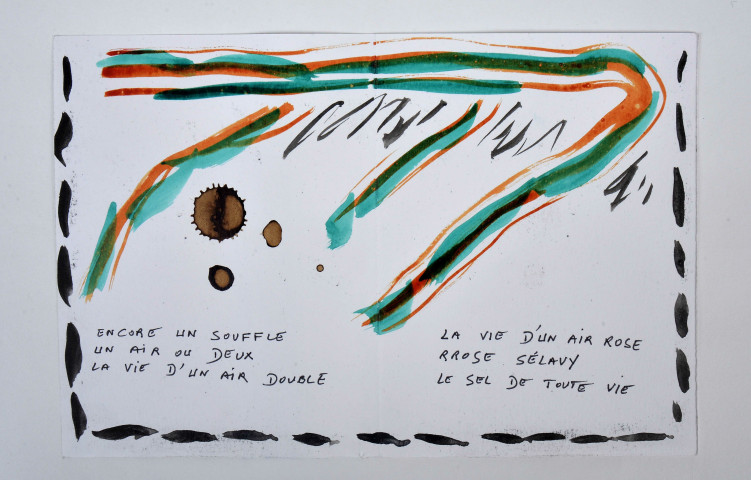 ENCORE UN SOUFFLE
UN AIR OU DEUX
LA VIE D'UN AIR DOUBLE
LA VIE D'UN AIR ROSE
RROSE SÉLAVY
LE SEL DE TOUTE VIE